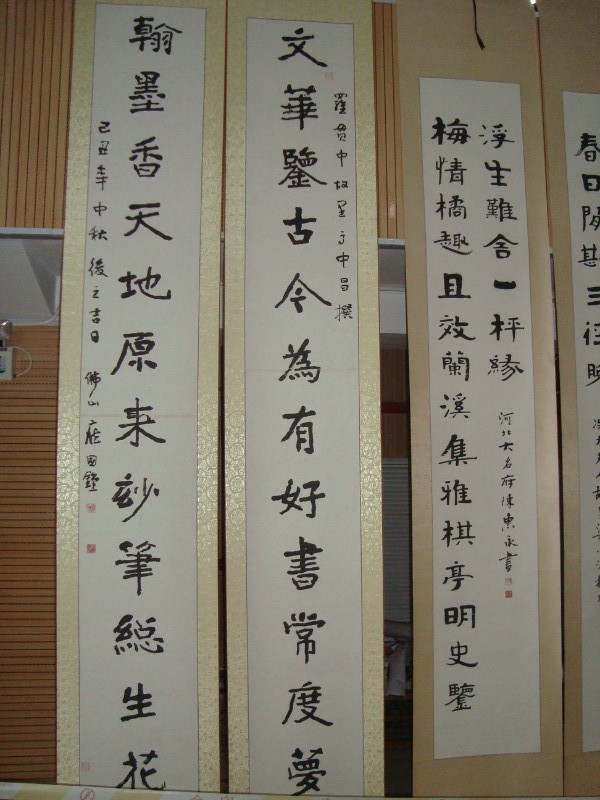 春日
浮生難舍一枰緣
河北大名府陳永書
梅情橘趣且效蘭溪集雅棋亭明史鑒
羅貫中故里于中昌撰
文華鑒古今為有好書常度夢
翰墨香天地原来妙筆緫生花
己丑年中秋後之吉日 佛山龐国鍾